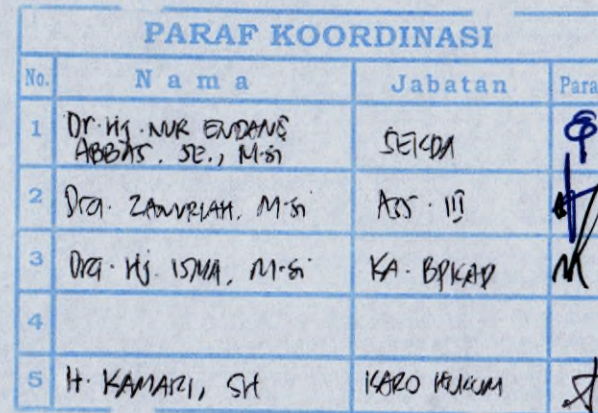 PARAF KOORDINASI
No. Nama Jabatan Para
1 Dr. Hj. NUR ENDANG ABBAS. SE., M.Si SEKDA
2 Dra. ZANURIAH, M.Si ASS. III
3 Dra. Hj. ISMA, M.Si KA. BPKAD
4
5 H. KAMARI, SH KARO HUKUM